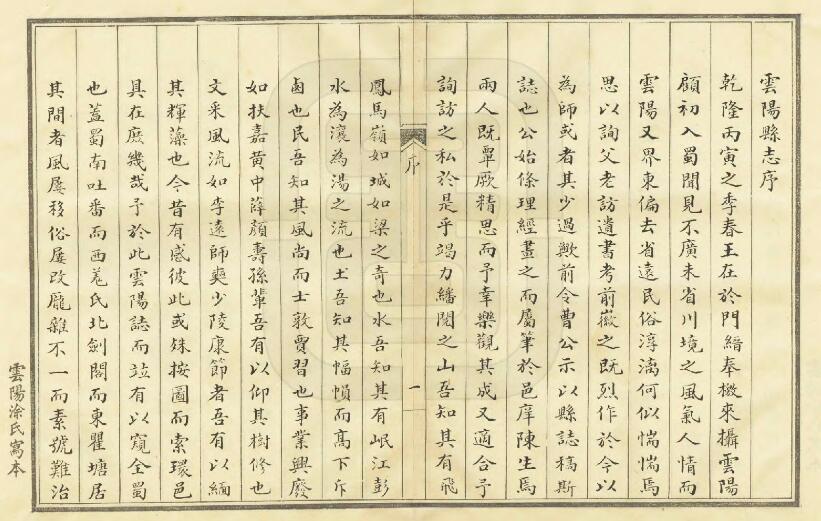 雲陽縣志序
乾隆丙寅之季春王在於門縉奉檄來攝雲陽
顧初入蜀聞見不廣未省川境之風氣人情而
雲陽又界東偏去省遠民俗淳漓何似惴惴焉
思以詢父老訪遺書考前徽之既烈作於今以
為師或者其少過歟前令曹公示以縣誌稿斯
誌也公始條理經畫之而屬筆於邑庠陳生馬
兩人既覃厥精思而予幸樂觀其成又適合予
詢訪之私於是乎竭力繙閱之山吾知其有飛
序
一
鳳馬嶺如城如梁之奇也水吾知其有岷江彭
水為瀼為湯之流也土吾知其幅幀而高下斥
鹵也民吾知其風尚而士敦賈習也事業興廢
如扶嘉黄中薛顏壽孫輩吾有以仰其樹修也
文采風流如李遠師奭少陵康節者吾有以緬
其輝藻也今昔有感彼此或殊按圖而索環邑
具在庶幾哉予於此雲陽誌而竝有以窺全蜀
也蓋蜀南吐番而西羌氏北劍閣而東瞿塘居
其間者風屡移俗屡改龎雜不一而素號難治
雲陽涂氏寫本